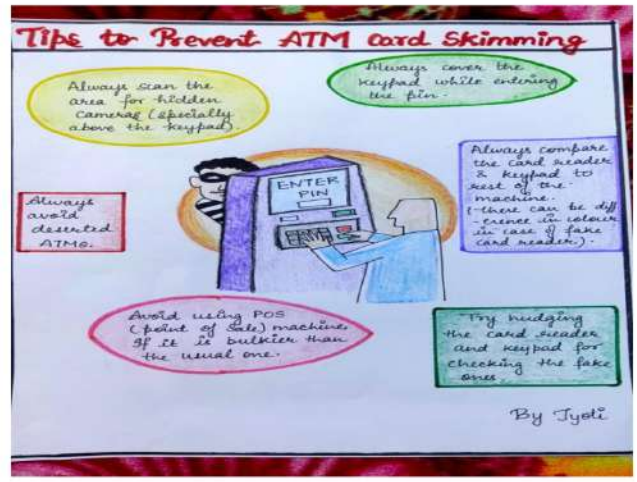 Tips to Prevent ATM Card Skimming
Always scan the
area for hidden
cameras (specially
above the keypad).
Always cover the
keypad while entering
the pin.
Always compare
the card reader
& keypad to
rest of the
machine.
(there can be diff
-erence in colour
in case of fake
card reader.).
Always
avoid
deserted
ATMs.
ENTER
PIN
Avoid using POS
(point of sale) machine,
If it is bulkier than
the usual one.
Try nudging
the card reader
and keypad for
checking the fake
ones.
By Jyoti